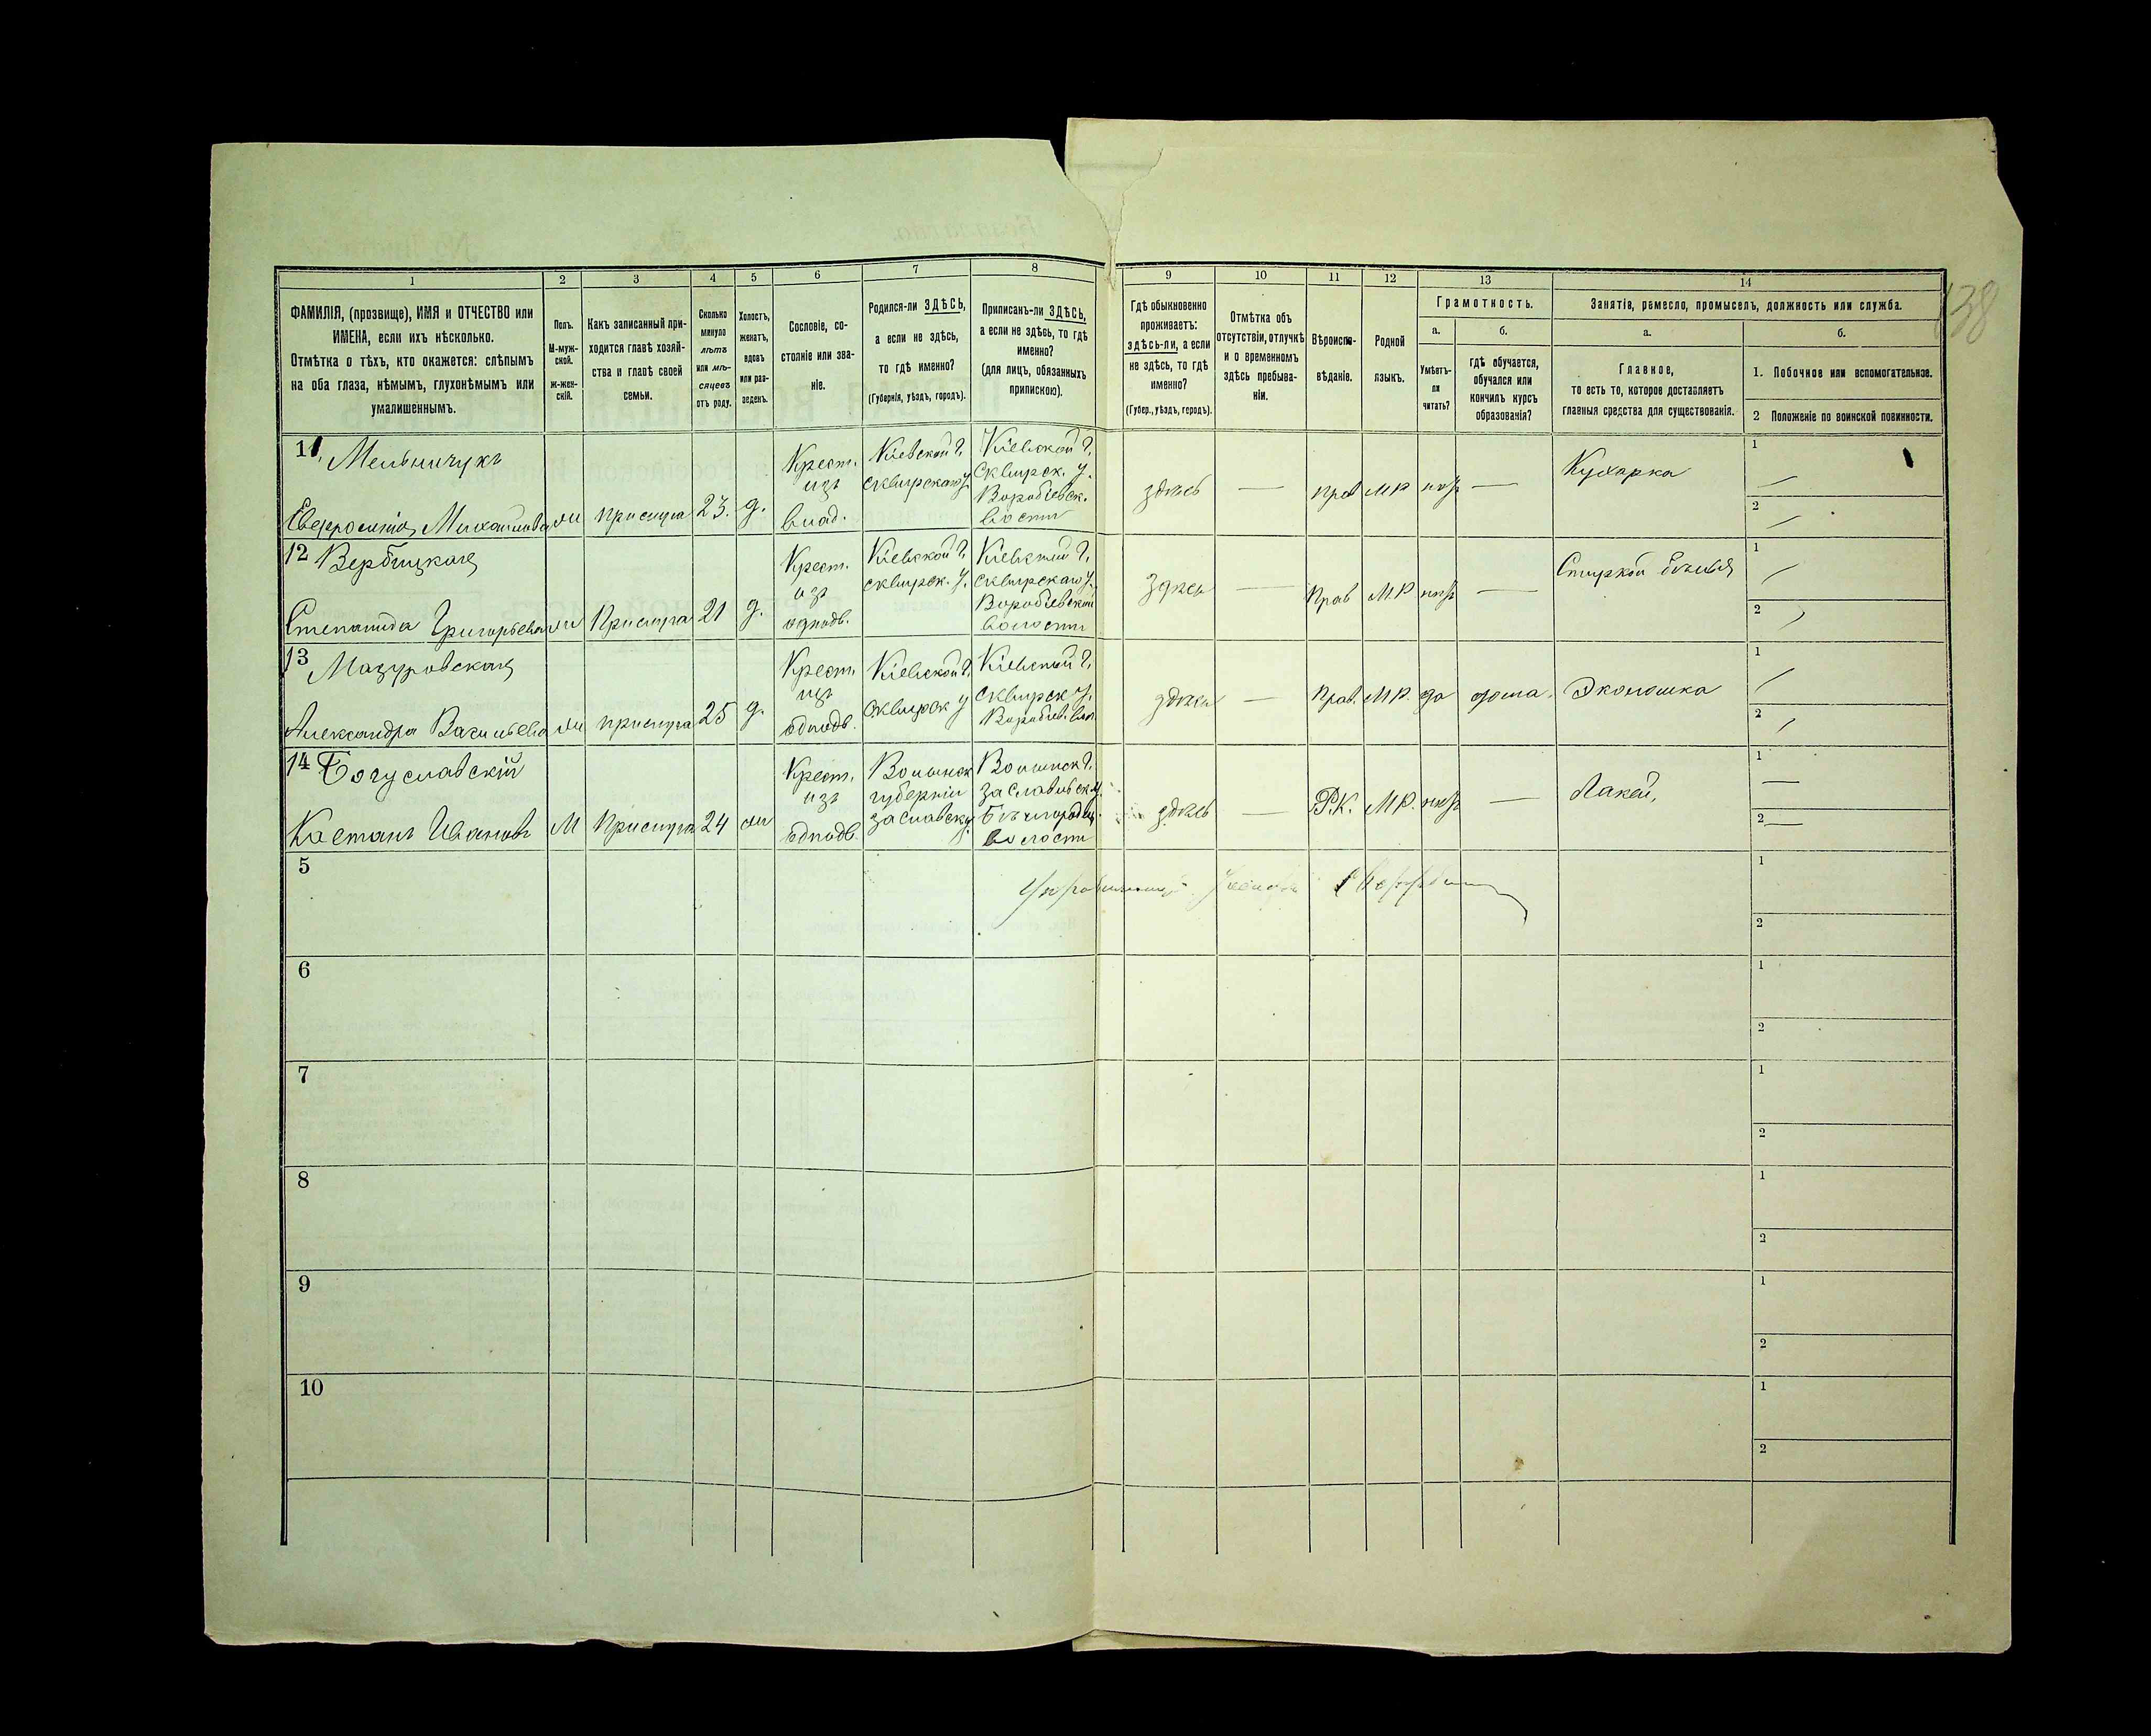 138
1
2
3
4
5
6
7
8
9
10
11
12
13
14
ФАМИЛІЯ, (прозвище), ИМЯ и ОТЧЕСТВО или
ИМЕНА, если ихъ нѣсколько.
Отмѣтка о тѣхъ, кто окажется: слѣпымъ
на оба глаза, нѣмымъ, глухонѣмымъ или
умалишеннымъ.
Полъ.
М-муж-
ской.
Ж-жен-
скій.
Какъ записанный при-
ходится главѣ хозяй-
ства и главѣ своей
семьи.
Сколько
минуло
лѣтъ
или мѣ-
сяцевъ
отъ роду.
Холостъ,
женатъ,
вдовъ
или раз-
веденъ.
Сословіе, со-
стояніе или зва-
ніе.
Родился-ли ЗДѢСЬ,
а если не здѣсь,
то гдѣ именно?
(Губернія, уѣздъ, городъ).
Приписанъ-ли ЗДѢСЬ,
а если не здѣсь, то гдѣ
именно?
(для лицъ, обязанныхъ
припискою).
Гдѣ обыкновенно
проживаетъ:
здѣсь-ли, а если
не здѣсь, то гдѣ
именно?
(Губер., уѣздъ, городъ).
Отмѣтка объ
отсутствіи, отлучкѣ
и о временномъ
здѣсь пребыва-
ніи.
Вѣроиспо-
вѣданіе.
Родной
языкъ.
Грамотность.
а.
б.
Умѣетъ-
ли
читать?
гдѣ обучается,
обучался или
кончилъ курсъ
образованія?
Занятія, ремесло, промыселъ, должность или служба.
а.
б.
Главное,
то есть то, которое доставляетъ
главныя средства для существованія.
1. Побочное или вспомогательное.
2 Положеніе по воинской повинности.
11 Мельничукъ
Евфросинія Михайлова ж прислуга 23. д.
Крест.
изъ
влад.
Кіевской г.
Сквирскаго у.
Кіевской г.
Сквирск. у.
Воробіевск.
вости
здѣсь — прав МР нѣтъ —
Кухарка
1
2
12 Вербицкая
Степанида Григорьева ж Прислуга 21 д.
Крест.
изъ
однодв.
Кіевской г.
сквирск. у.
Кіевской г.
Сквирскаго у.
Воробіевской
волости
Здѣсь — Прав М.Р нѣтъ —
Стиркой бѣлья
1
2
13 Мазуровская
Александра Васильева ж прислуга 25 д.
Крест.
изъ
однодв.
Кіевской г.
Сквирск у
Кіевской г.
Сквирск у.
Воробіев. вол.
здѣсь — Прав. МР. да дома. Экономка
1
2
14 Богуславскій
Кастанъ Ивановъ М Прислуга 24 ж
Крест.
изъ
однодв.
Волынск
губерніи
Заславск у.
Волынск г.
Заславльск у.
Бѣлгородец.
волости
здѣсь — Р.К. МР. нѣтъ —
Лакей,
1
2
5
1
2
6
1
2
7
1
2
8
1
2
9
1
2
10
1
2